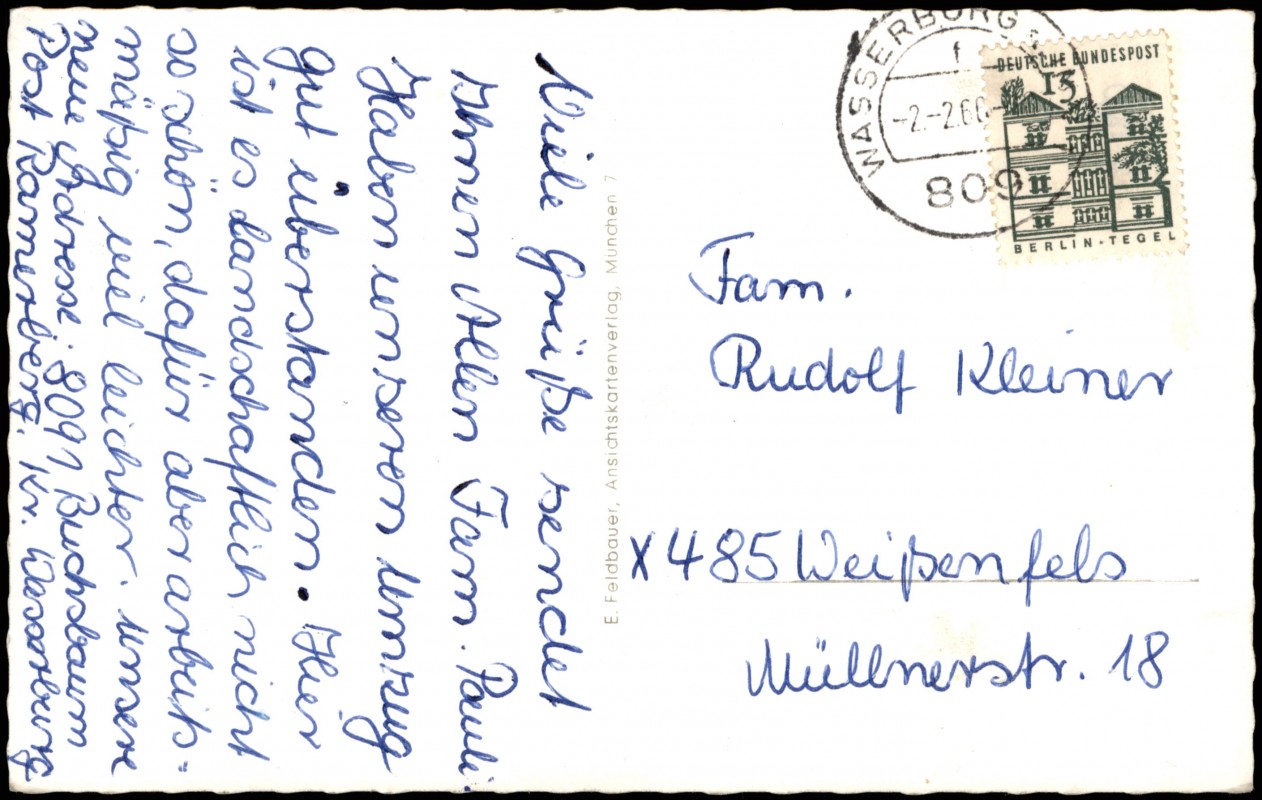 Viele Grüße sendet
Ihnen Allen Fam. Pauli.
Haben unseren Umzug
gut überstanden. Hier
ist es landschaftlich nicht
so schön, dafür aber arbeits=
mäßig viel leichter. Unsere
neue Adresse: 8091 Buchsbaum
Post Ramerberg, Kr. Wasserburg
E. Feldbauer, Ansichtskartenverlag, München 7
WASSERBURG
f
-2.-2.66
809
DEUTSCHE BUNDESPOST
15
BERLIN-TEGEL
Fam.
Rudolf Kleiner
X485 Weißenfels
Müllnerstr. 18